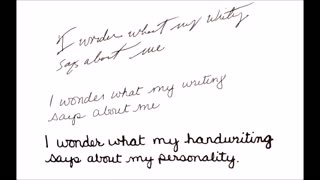 I wonder what my writing
says about me
I wonder what my writing
says about me
I wonder what my handwriting
says about my personality.